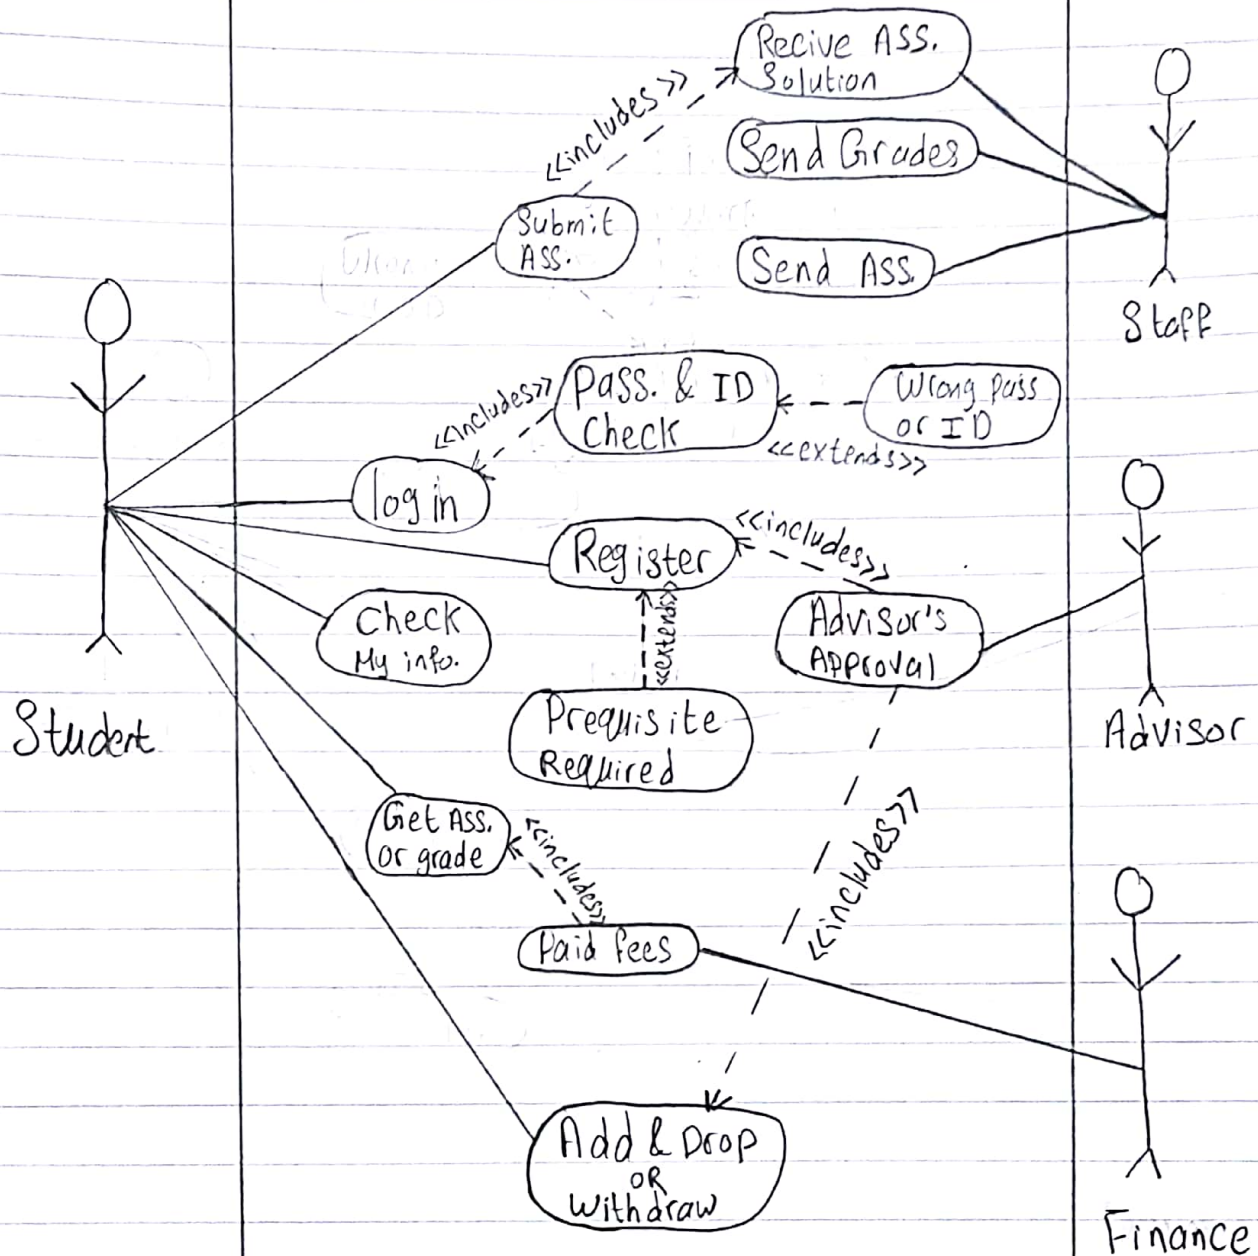 Recive Ass.
Solution
<<includes>>
Send Grades
Submit
Ass.
Send Ass.
Staff
Pass. & ID
Check
<<includes>>
Wrong pass
or ID
<<extends>>
log in
Register
<<includes>>
<<extends>>
Check
My info.
Advisor's
Approval
Student
Prequisite
Required
Advisor
Get Ass.
or grade
<<includes>>
<<includes>>
Paid fees
Add & Drop
OR
Withdraw
Finance